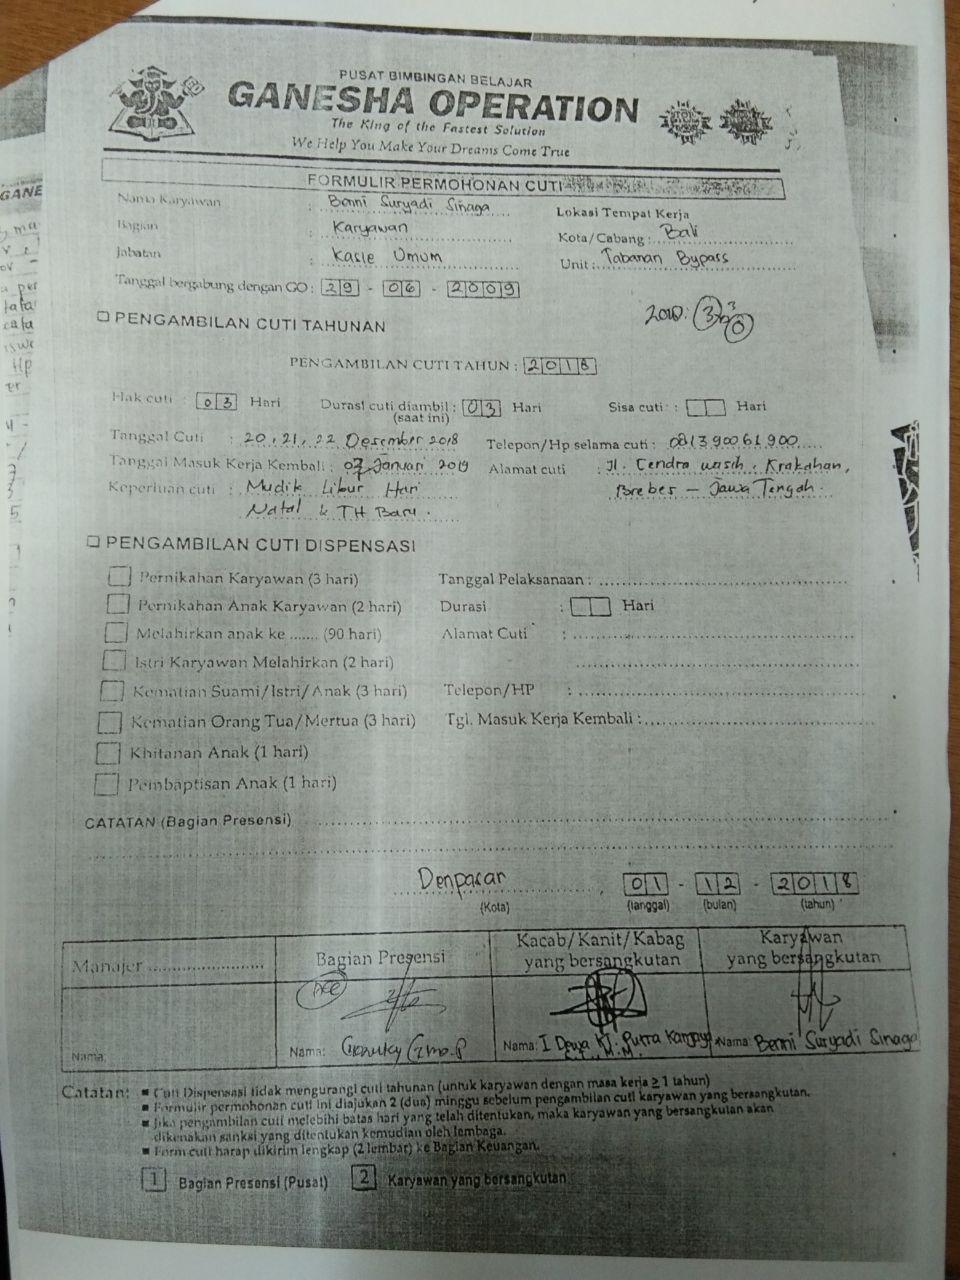 PUSAT BIMBINGAN BELAJAR
GANESHA OPERATION
The King of the Fastest Solution
We Help You Make Your Dreams Come True
FORMULIR PERMOHONAN CUTI
Nama Karyawan : Benni Suryadi Sinaga
Lokasi Tempat Kerja
Bagian : Karyawan
Kota/Cabang : Bali
Jabatan : Kasie Umum
Unit : Tabanan Bypass
Tanggal bergabung dengan GO : 29 - 06 - 2009
PENGAMBILAN CUTI TAHUNAN
PENGAMBILAN CUTI TAHUN : 2018
Hak cuti : 03 Hari Durasi cuti diambil : 03 Hari Sisa cuti : Hari
(saat ini)
Tanggal Cuti : 20, 21, 22 Desember 2018 Telepon/Hp selama cuti : 081390061900
Tanggal Masuk Kerja Kembali : 07 Januari 2019 Alamat cuti : Jl. Cendra wasih, Krakahan,
Keperluan cuti : Mudik Libur Hari Brebes - Jawa Tengah.
Natal & TH Baru.
PENGAMBILAN CUTI DISPENSASI
Pernikahan Karyawan (3 hari) Tanggal Pelaksanaan :
Pernikahan Anak Karyawan (2 hari) Durasi : Hari
Melahirkan anak ke ....... (90 hari) Alamat Cuti :
Istri Karyawan Melahirkan (2 hari)
Kematian Suami/Istri/Anak (3 hari) Telepon/HP :
Kematian Orang Tua/Mertua (3 hari) Tgl. Masuk Kerja Kembali :
Khitanan Anak (1 hari)
Pembaptisan Anak (1 hari)
CATATAN (Bagian Presensi)
Denpasar, 01 - 12 - 2018
(Kota) (tanggal) (bulan) (tahun)
Manajer Bagian Presensi Kacab/Kanit/Kabag yang bersangkutan Karyawan yang bersangkutan
Acc
Nama: Nama: Nama: I Dewa Kt. Putra Nama: Benni Suryadi Sinaga
Catatan: ■ Cuti Dispensasi tidak mengurangi cuti tahunan (untuk karyawan dengan masa kerja ≥ 1 tahun)
■ Formulir permohonan cuti ini diajukan 2 (dua) minggu sebelum pengambilan cuti karyawan yang bersangkutan.
■ Jika pengambilan cuti melebihi batas hari yang telah ditentukan, maka karyawan yang bersangkutan akan
dikenakan sanksi yang ditentukan kemudian oleh lembaga.
■ Form cuti harap dikirim lengkap (2 lembar) ke Bagian Keuangan.
1 Bagian Presensi (Pusat) 2 Karyawan yang bersangkutan